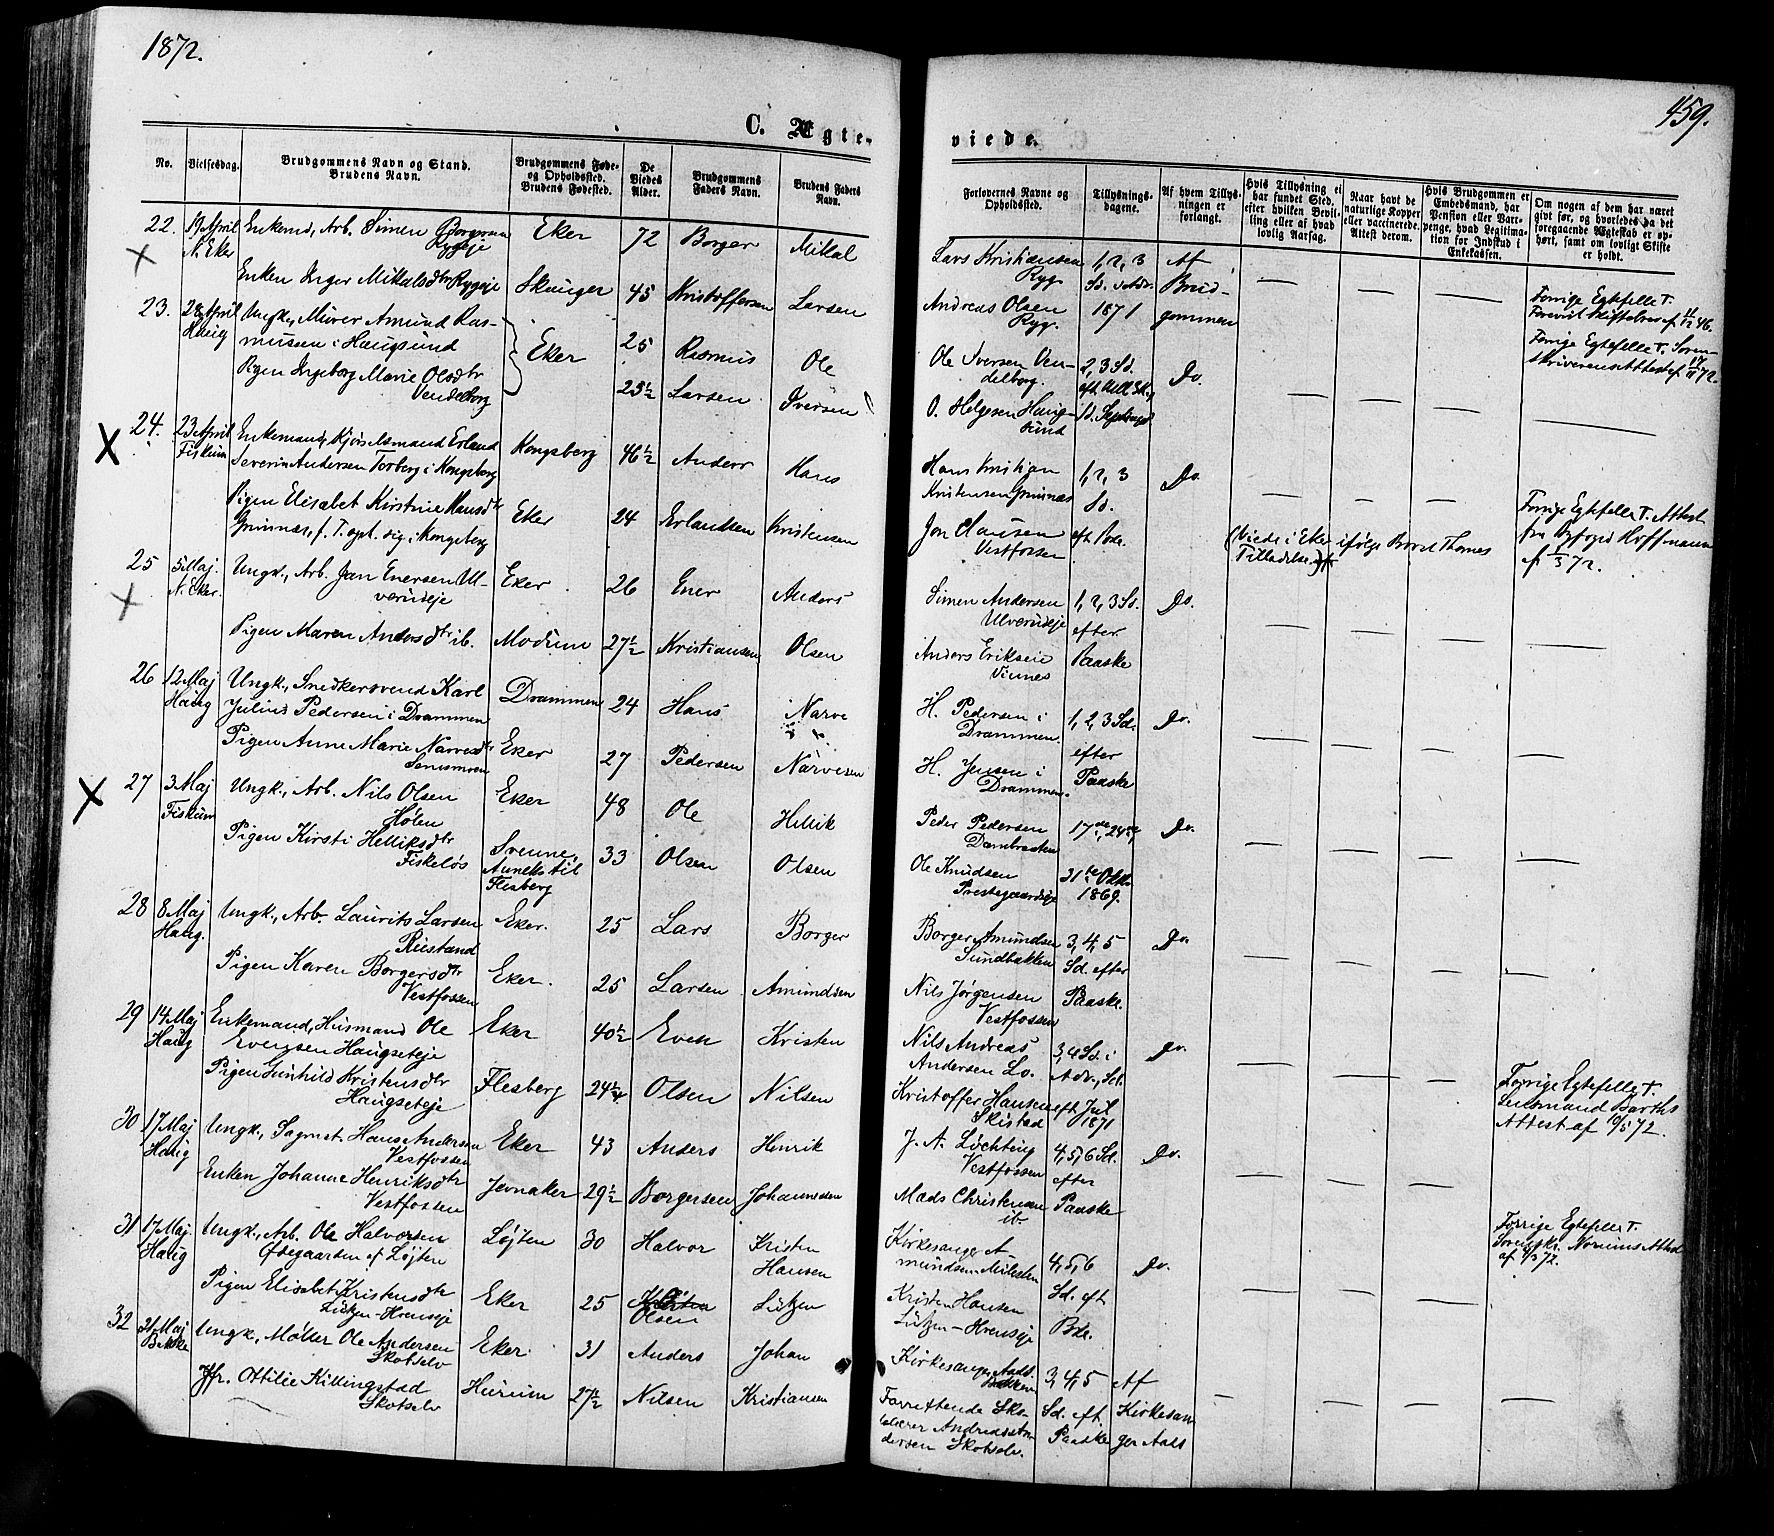 1872.
459.
C. Ægte-
viede.
No.
Vielsesdag.
Brudgommens Navn og Stand.
Brudens Navn.
Brudgommens Føde-
og Opholdssted.
Brudens Fødested.
De
Viedes
Alder.
Brudgommens
Faders Navn.
Brudens Faders
Navn.
Forlovernes Navne og
Opholdssted.
Tillysnings-
dagene.
Af hvem Tillys-
ningen er
forlangt.
Hvis Tillysning ei
har fundet Sted,
efter hvilken Bevil-
ling eller af hvad
lovlig Aarsag.
Naar havt de
naturlige Kopper
eller vaccinerede.
Attest derom.
Hvis Brudgommen er
Embedsmand, har
Pension eller Vart-
penge, hvad Legitima-
tion for Indskud i
Enkekassen.
Om nogen af dem har været
gift før, og hvorledes da det
foregaaende Ægteskab er op-
hørt, samt om lovligt Skifte
er holdt.
22. 19 April Enkemd, Arb. Simen Borgersen Eker 72 Borger Mikal
N. Eker Ryggeje
Enken Inger Mikalsdtr Ryggeje Skauger 45 Kristoffersen Larsen
Lars Kristiansen 1, 2, 3 Af
Ryg. Sd. i Adv. Brud-
Andreas Olsen 1871 gommen
Ryg.
Forrige Egtefelle †.
Forevist Skiftebrev af
23. 28 April Ungk., Murer Amund Ras-
Haug mussen i Haugsund Eker 25 Rasmus Ole
Pigen Ingeborg Marie Olsdtr
Vendelborg 25½ Larsen Iversen
Ole Iversen Ven- 2, 3 Sd. Do.
delborg.
O. Helgesen Haug-
sund
Forrige Egtefelle †. Soren-
skriverens Attest af 72.
24. 23 April Enkemand, Kjørselsmand Erland Kongsberg 46½ Anders Hans
Fiskum Severin Andersen Torberg i Kongsberg
Pigen Elisabet Kirstine Hansdtr Eker 24 Erlandsen Kristensen
Grinnæs, f. T. oph. sig i Kongsberg
Hans Kristian 1, 2, 3 Do.
Kristensen Grinnæs Sd.
Jon Clausen
Vestfossen
(Viede i Eker ifølge Thomes
Tilladelse)
Forrige Egtefelle †. Attest
fra Byfogd Hoffmann
af 1/3 72.
25 5 Maj. Ungk., Arb. Jan Enersen Ul- Eker 26 Ener Anders
N. Eker. verudeje
Pigen Maren Andersdtr ib. Modum 27½ Kristiansen Olsen
Simen Andersen 1, 2, 3 Sd. Do.
Ulverudeje efter
Anders Eriksen Paaske
Vinnes
26 12 Maj Ungk., Snedkersvend Karl Drammen 24 Hans Narve
Haug Julius Pedersen i Drammen
Pigen Anne Marie Narvesdtr Eker 27 Pedersen Narvesen
H. Pedersen i 1, 2, 3 Sd. Do.
Drammen. efter
H. Jensen i Paaske
Drammen.
27 3 Maj Ungk., Arb. Nils Olsen Eker 48 Ole Hellik
Fiskum Hølen
Pigen Kirsti Helliksdtr Svenne, 33 Olsen Olsen
Fiskeløs Anneks til
Flesberg
Peder Pedersen 17de, 24de Do.
Dambraaten
Ole Knudsen 31te Oktbr
Prestegaardseje 1869.
28 8 Maj Ungk., Arb. Laurits Larsen Eker. 25 Lars Borger
Haug. Rustand
Pigen Karen Borgersdtr Eker. 25 Larsen Amundsen
Vestfossen
Borger Amundsen 3, 4, 5 Do.
Sundbakken Sd. efter
Nils Jørgensen Paaske.
Vestfossen
29 14 Maj Enkemand, Husmand Ole Eker 40½ Even Kristen
Haug Evensen Haugseteje
Pigen Gunhild Kristensdtr Flesberg 24½ Olsen Nilsen
Haugseteje
Nils Andreas 3, 4 Sd. i Do.
Andersen Lo. Adv., Sd.
Kristoffer Hansen eft Jul
Skistad 1871
Forrige Egtefelle †.
Lensmand Barths
Attest af 10/5 72.
30 17 Maj Ungk., Sagmst. Hans Andersen Eker 43 Anders Henrik
Haug Vestfossen
Enken Johanne Henriksdtr Jevnaker 29½ Borgersen Johannesen
Vestfossen
J. A. Løchting 4, 5, 6 Sd. Do.
Vestfossen efter
Mads Christensen Paaske
ib.
Forrige Egtefelle †.
Sorenskr. Nørums Attest
af 72.
31 17 Maj Ungk., Arb. Ole Halvorsen Løjten 30 Halvor Kristen
Haug Ødegaarden af Løjten Hansen
Pigen Elisabet Kristensdtr Eker 25 Olsen Lützen
Lützen-Hvenseje
Kirkesanger A- 4, 5, 6 Do.
mundsen Milesten Sd. eft
Kristen Hansen Pske.
Lützen-Hvenseje
32 21 Maj Ungk., Møller Ole Andersen Eker. 31 Anders Johan
Bakke Skotselv
Jfr. Ottilie Killingstad Hurum 27½ Nilsen Kristiansen
Skotselv
Kirkesanger Aads 3, 4, 5 Af
Bakken
Forrettende Sko- Sd. eft. Kirkesan-
lelærer Andreas An- Paaske ger Aads
dersen Skotselv.